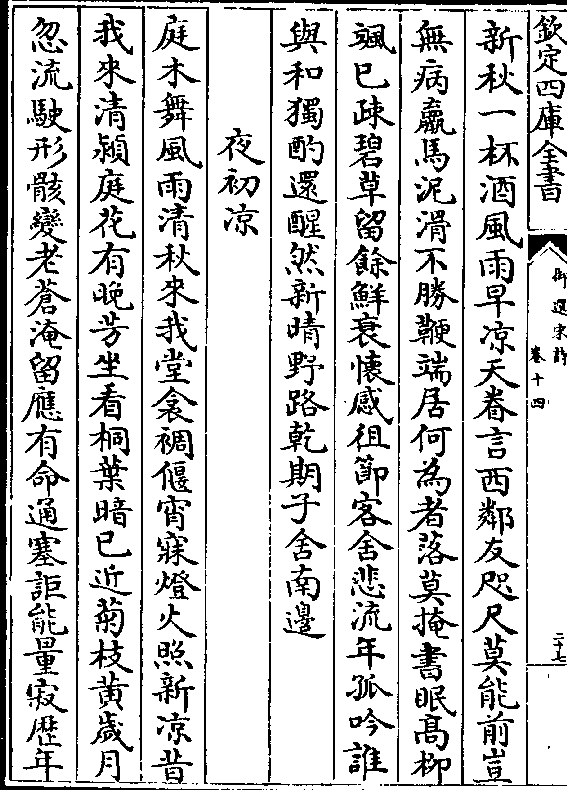 欽定四庫全書
御選宋詩
卷十四
二十七
新秋一杯酒風雨早凉天眷言西鄰友咫尺莫能前豈
無病羸馬泥滑不勝鞭端居何為者落莫掩書眠髙柳
颯已疎碧草留餘鮮衰懐感徂節客舍悲流年孤吟誰
與和獨酌還醒然新晴野路乾期子舍南邊
夜初凉
庭木舞風雨清秋來我堂衾裯偃宵寐燈火照新凉昔
我來清潁庭花有晚芳坐看桐葉暗已近菊枝黄歲月
忽流駛形骸變老蒼淹留應有命通塞詎能量寂歴年